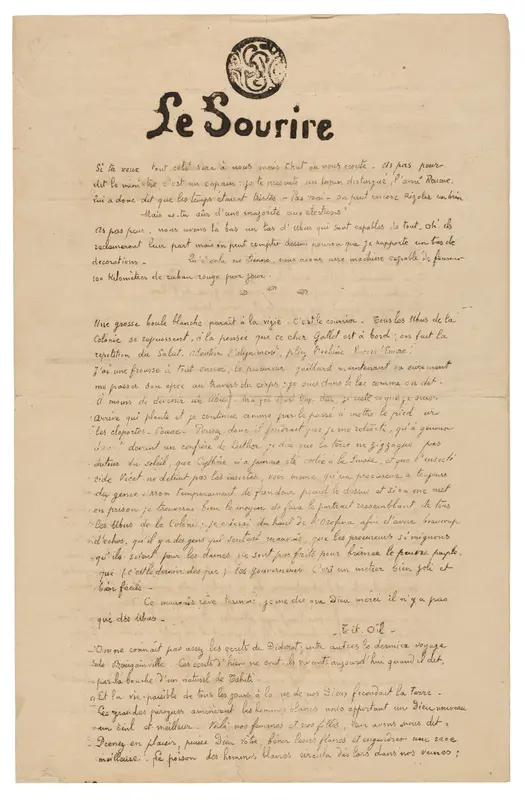 Le Sourire
Si tu veux tout cela sera à nous mais Chut on nous écoute - As pas peur
dit le ministre c'est un copain: je te présente un lapin distingué, l'ami
Lui a donc dit que les temps étaient tristes - pas vrai - On peut encore Rigoler un brin
Mais es-tu sûr d'une majorité aux élections?
As pas peur, nous avons là bas un tas d'Ubus qui sont capables de tout, oh! ils
réclameront leur part mais on peut compter dessus pourvu que je rapporte un tas de
décorations - Qu'à cela ne tienne, nous avons une machine capable de fournir
100 Kilomètres de ruban rouge par jour.
Une grosse boule blanche paraît à la vigie. C'est le courrier. Tous les Ubus de la
Colonie se à la pensée que ce cher Gallet est à bord; on fait la
répétition du Salut.
J'ai une frousse à tout casser, le procureur gaillard maintenant va surement
me passer son épée au travers du corps: je suis dans le lac comme on dit.
A moins de devenir un je reste ce que je suis
arrive qui plante et je continue comme par le passé à mettre le pied sur
les cloportes. donc il faudrait que je me rétracte, qu'à genoux
devant un confrère de Luther, je dise que la terre ne zigzague pas
autour du soleil, que Cythère n'a jamais été à la Suisse, et que l'insecti
cide Vicat ne détruit pas les insectes, voir même qu'un procureur a toujours
du génie. Mon tempérament de frondeur prend le dessus et si on me met
en prison je trouverai bien le moyen de faire le portrait ressemblant de tous
les Ubus de la Colonie; je crierai du haut de afin d'avoir beaucoup
d'échos, qu'il y a des gens qui sentent mauvais, que les procureurs si mignons
qu'ils soient pour les dames ne sont pas faits pour brimer le pauvre peuple,
que (c'est le dernier des que) les gouverneurs C'est un métier bien joli et
bien facile.
Ce mauvais rêve terminé, je me dis que Dieu merci il n'y a pas
que des Ubus.
- Tit-Oil -
On ne connaît pas assez les écrits de Diderot; entre autres le dernier voyage
de Bougainville. Ces écrits d'hier ne sont-ils vivants aujourd'hui quand il dit,
par la bouche d'un naturel de Tahiti
"Et la vie paisible de tous les jours à la vie de nos Dieux fécondait la terre.
Les grandes pirogues amenèrent les hommes blancs nous apportant un Dieu nouveau
un seul et meilleur. Voilà nos femmes et nos filles, leur avons nous dit:
Prenez en plaisir, puisse Dieu vôtre, bénir leurs flancs et engendrer une race
meilleure. Le poison des hommes blancs circula dès lors dans nos veines;